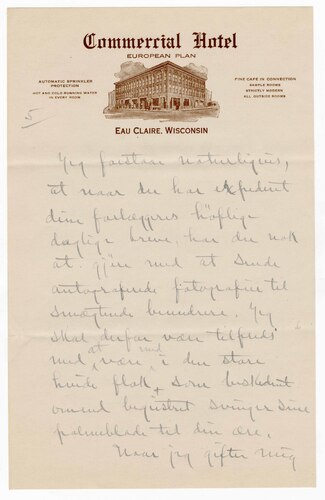 Commercial Hotel
EUROPEAN PLAN
AUTOMATIC SPRINKLER
PROTECTION
HOT AND COLD RUNNING WATER
IN EVERY ROOM
FINE CAFE IN CONNECTION
SAMPLE ROOMS
STRICTLY MODERN
ALL OUTSIDE ROOMS
EAU CLAIRE, WISCONSIN
5
Jeg forstaar naturligvis,
at naar du har expedert
dine forlæggeres höflige
daglige breve, har du nok
at gjöre med at sende
autograferede fotografier til
smægtende beundrere. Jeg
skal derfor være tilfreds
med, at være med i den store
hvide flok, som beskedent
omend begeistret svinger sine
palmeblade til din ære.
Naar jeg gifter mig